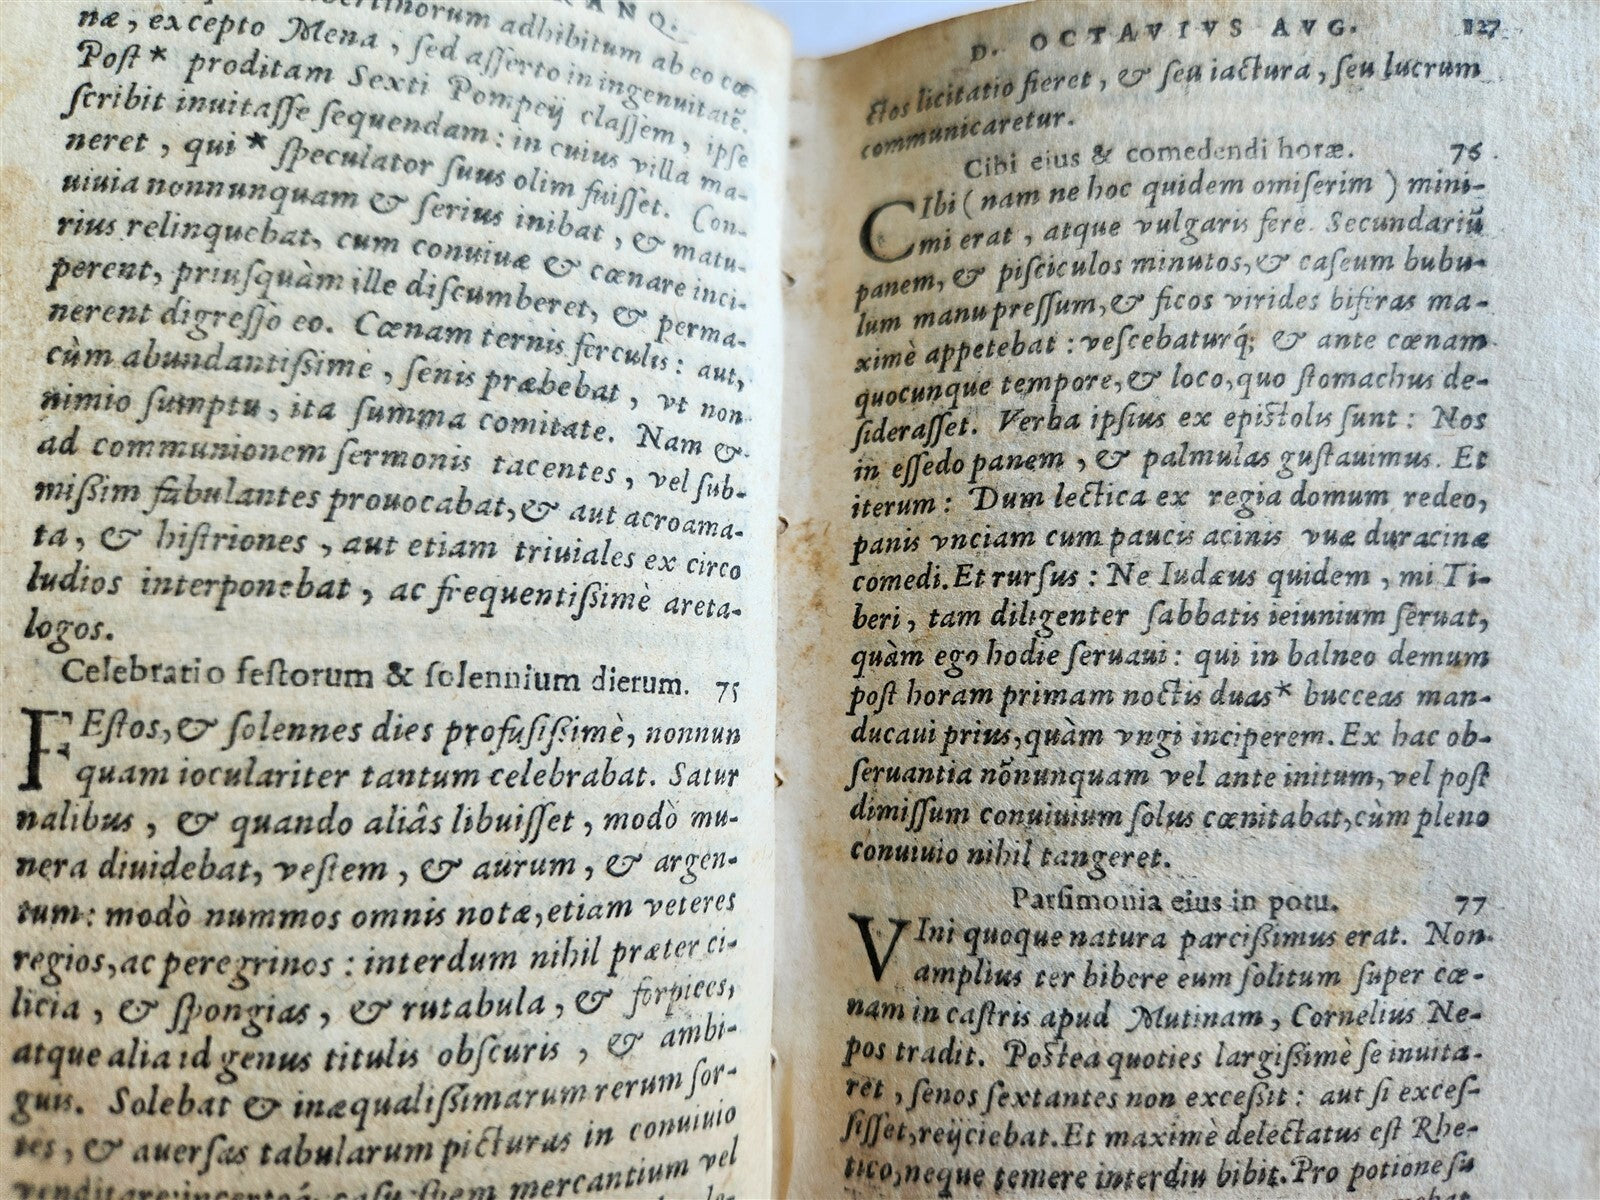 RANQ.
libertinorum adhibitum ab eo cœ
næ, excepto Mena, ſed aſſerto in ingenuitatẽ.
Poſt * proditam Sexti Pompeij claſſem, ipſe
ſcribit inuitaſſe ſequendam: in cuius villa ma-
neret, qui * ſpeculator ſuus olim fuiſſet. Con-
uiuia nonnunquam & ſerius inibat, & matu-
rius relinquebat, cum conuiuæ & cœnare inci-
perent, priuſquàm ille diſcumberet, & perma-
nerent digreſſo eo. Cœnam ternis ferculis: aut,
cùm abundantiſſimè, ſenis præbebat, vt non
nimio ſumptu, ita ſumma comitate. Nam &
ad communionem ſermonis tacentes, vel ſub-
miſſim fabulantes prouocabat, & aut acroama-
ta, & hiſtriones, aut etiam triuiales ex circo
ludios interponebat, ac frequentiſſimè areta-
logos.
Celebratio feſtorum & ſolennium dierum. 75
FEſtos, & ſolennes dies profuſiſſimè, nonnun
quam ioculariter tantum celebrabat. Satur
nalibus, & quando aliâs libuiſſet, modò mu-
nera diuidebat, veſtem, & aurum, & argen-
tum: modò nummos omnis notæ, etiam veteres
regios, ac peregrinos: interdum nihil præter ci-
licia, & ſpongias, & rutabula, & forpices,
atque alia id genus titulis obſcuris, & ambi-
guis. Solebat & inæqualiſſimarum rerum ſor-
tes, & auerſas tabularum picturas in conuiuio
venditare: incertoq́; caſu ſpem mercantium vel
D. OCTAVIVS AVG. 127
ctos licitatio fieret, & ſeu iactura, ſeu lucrum
communicaretur.
Cibi eius & comedendi horæ. 76.
CIbi (nam ne hoc quidem omiſerim) mini-
mi erat, atque vulgaris fere. Secundariũ
panem, & piſciculos minutos, & caſeum bubu-
lum manu preſſum, & ficos virides biferas ma-
ximè appetebat: veſcebaturq́; & ante cœnam
quocunque tempore, & loco, quo ſtomachus de-
ſideraſſet. Verba ipſius ex epiſtolis ſunt: Nos
in eſſedo panem, & palmulas guſtauimus. Et
iterum: Dum lectica ex regia domum redeo,
panis vnciam cum paucis acinis vuæ duracinæ
comedi. Et rurſus: Ne Iudæus quidem, mi Ti-
beri, tam diligenter ſabbatis ieiunium ſeruat,
quàm ego hodie ſeruaui: qui in balneo demum
poſt horam primam noctis duas * bucceas man-
ducaui prius, quàm vngi inciperem. Ex hac ob-
ſeruantia nõnunquam vel ante initum, vel poſt
dimiſſum conuiuium ſolus cœnitabat, cùm pleno
conuiuio nihil tangeret.
Parſimonia eius in potu. 77
VIni quoque natura parciſſimus erat. Non
amplius ter bibere eum ſolitum ſuper cœ-
nam in caſtris apud Mutinam, Cornelius Ne-
pos tradit. Poſtea quoties largiſſimè ſe inuita-
ret, ſenos ſextantes non exceſſit: aut ſi exceſ-
ſiſſet, reijciebat. Et maximè delectatus eſt Rhe-
tico, neque temere interdiu bibit. Pro potione ſu